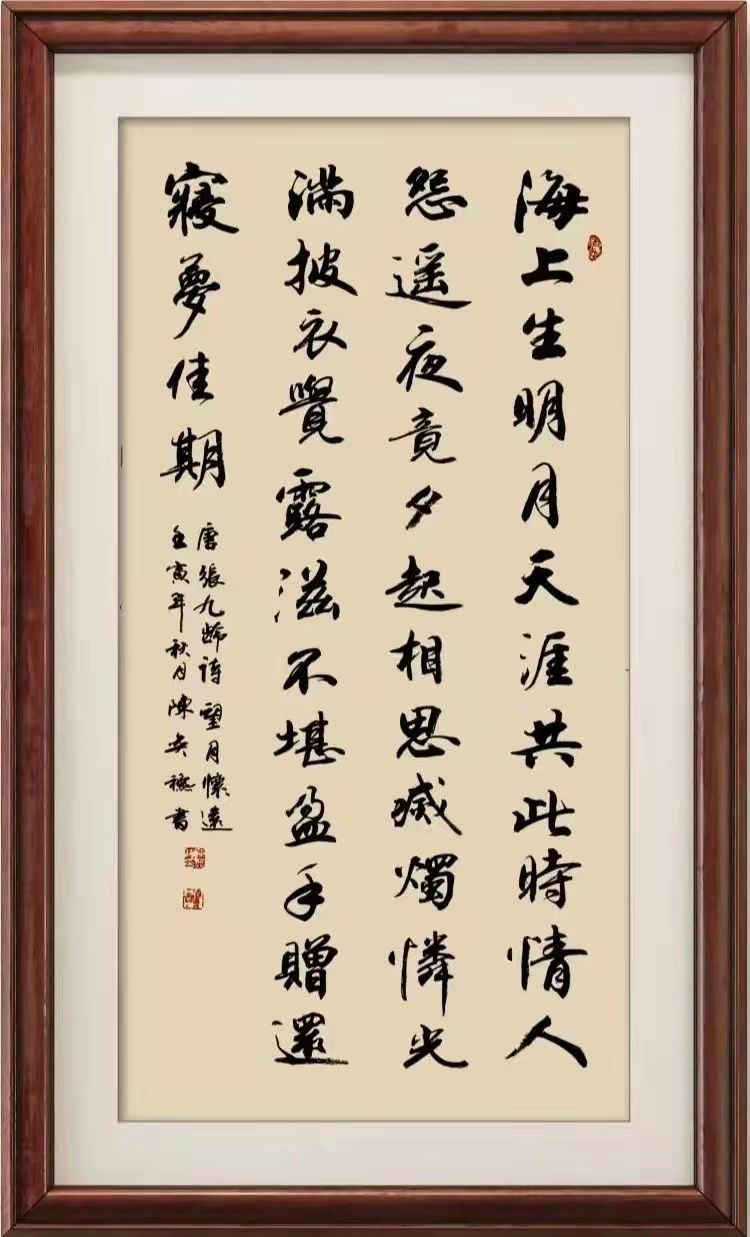 海上生明月天涯共此時情人
怨遥夜竟夕起相思滅燭憐光
滿披衣覺露滋不堪盈手贈還
寢夢佳期
唐張九龄诗望月懷遠
壬寅年秋月陳书